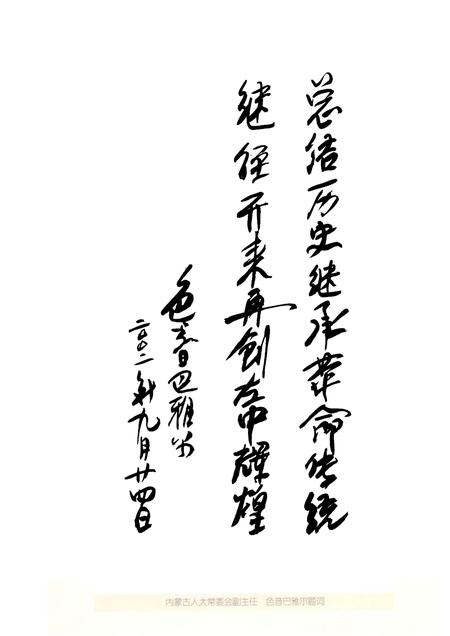 总结历史继承革命传统
继往开来再創左中辉煌
色音巴雅尔
二〇〇二年九月廿四日
内蒙古人大常委会副主任 色音巴雅尔题词